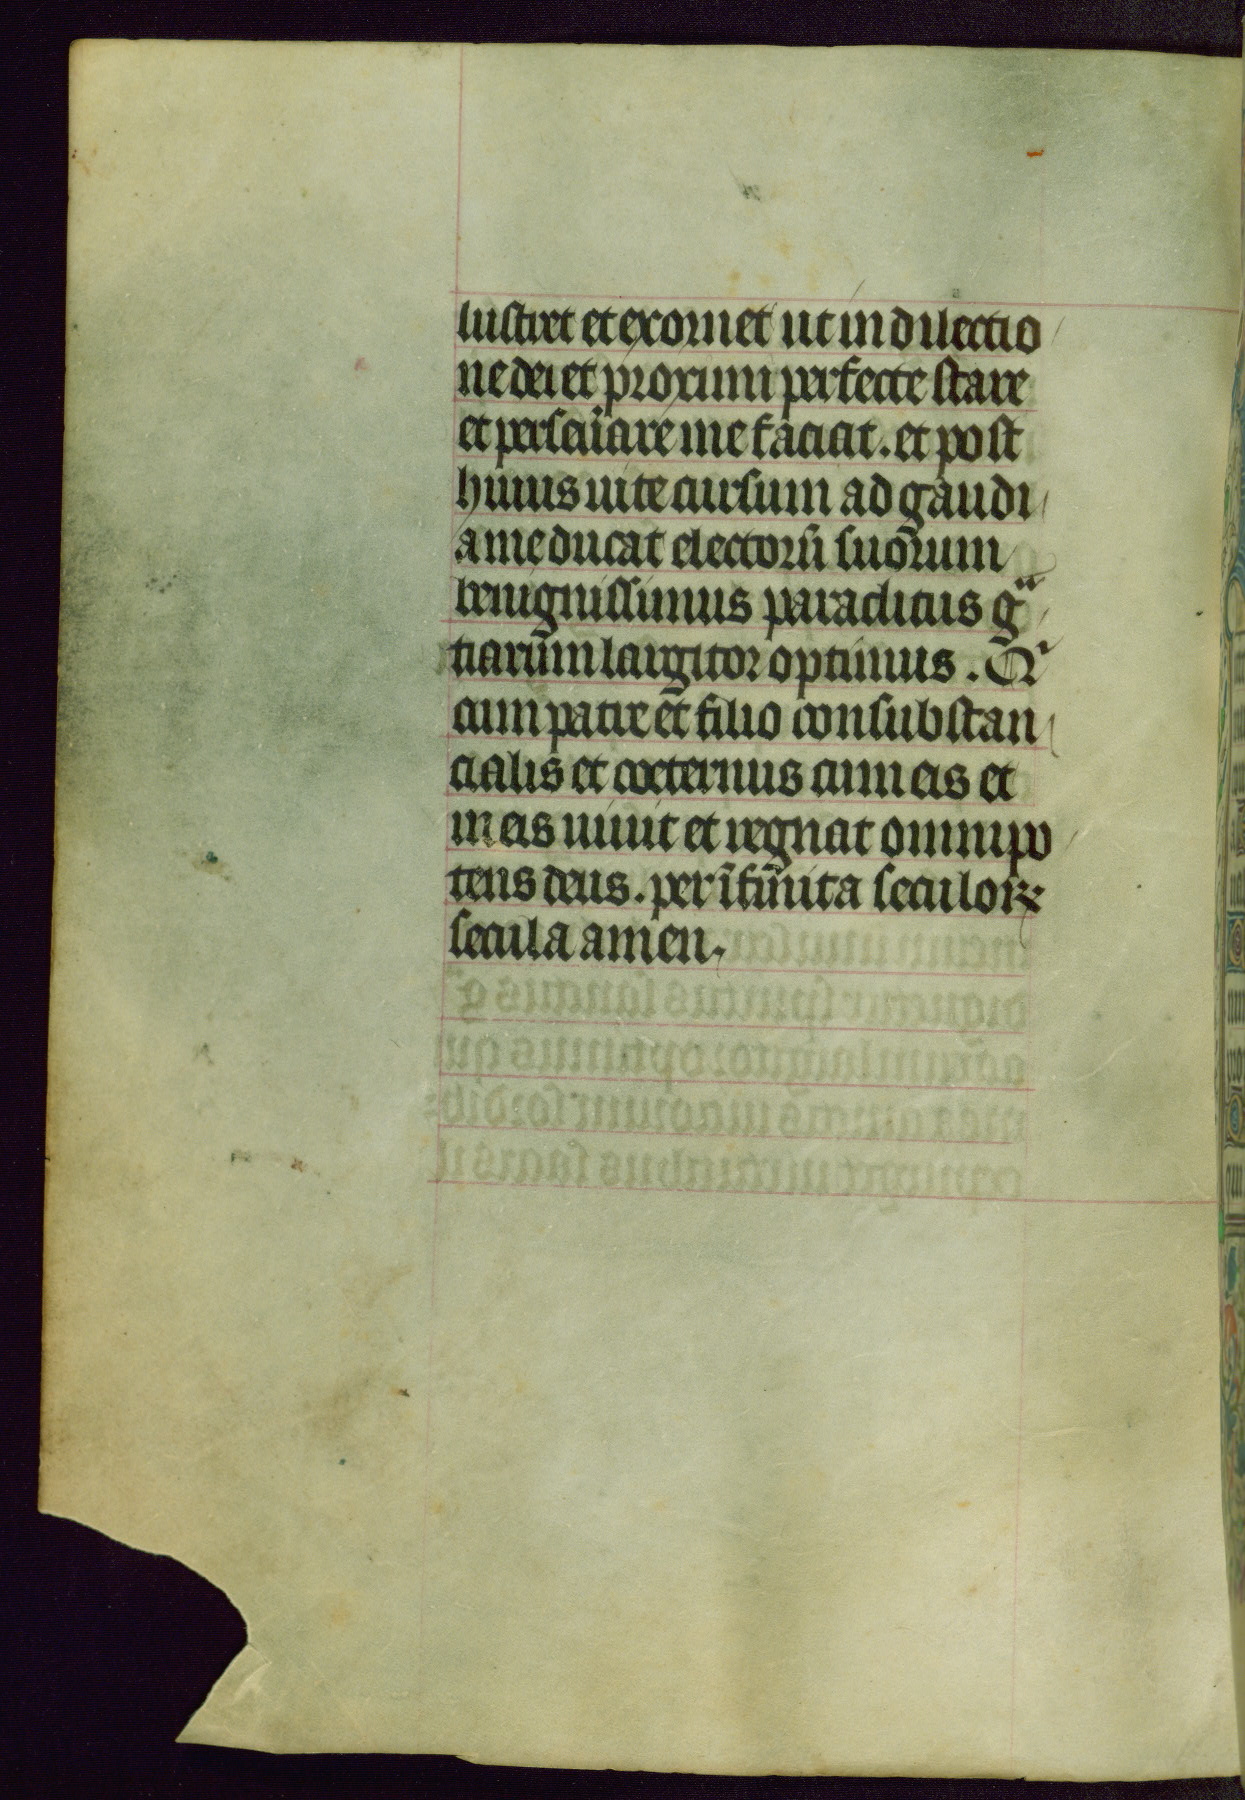 lustret et exornet ut in dilectio
ne dei et proximi perfecte stare
et perseũare me faciat. et post
huius uite cursum ad gaudi
a me ducat electorũ suorum
benignissimus paraclitus gᵃ
tiarum largitor optimus. Qⁱ
cum patre et filio consubstan
cialis et coeternus cum eis et
in eis uiuit et regnat omnipo
tens deus. per ĩfinita seculoꝝ
secula amen.